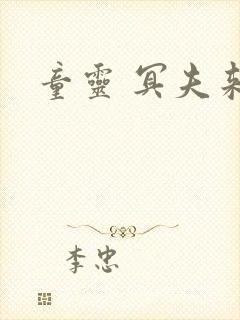 童靈 冥夫
李忠